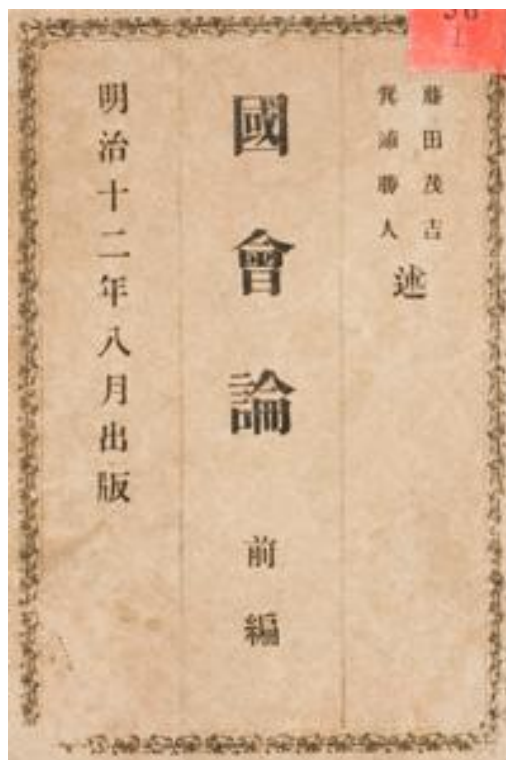 藤田茂吉
箕浦勝人
述
國會論
前編
明治十二年八月出版